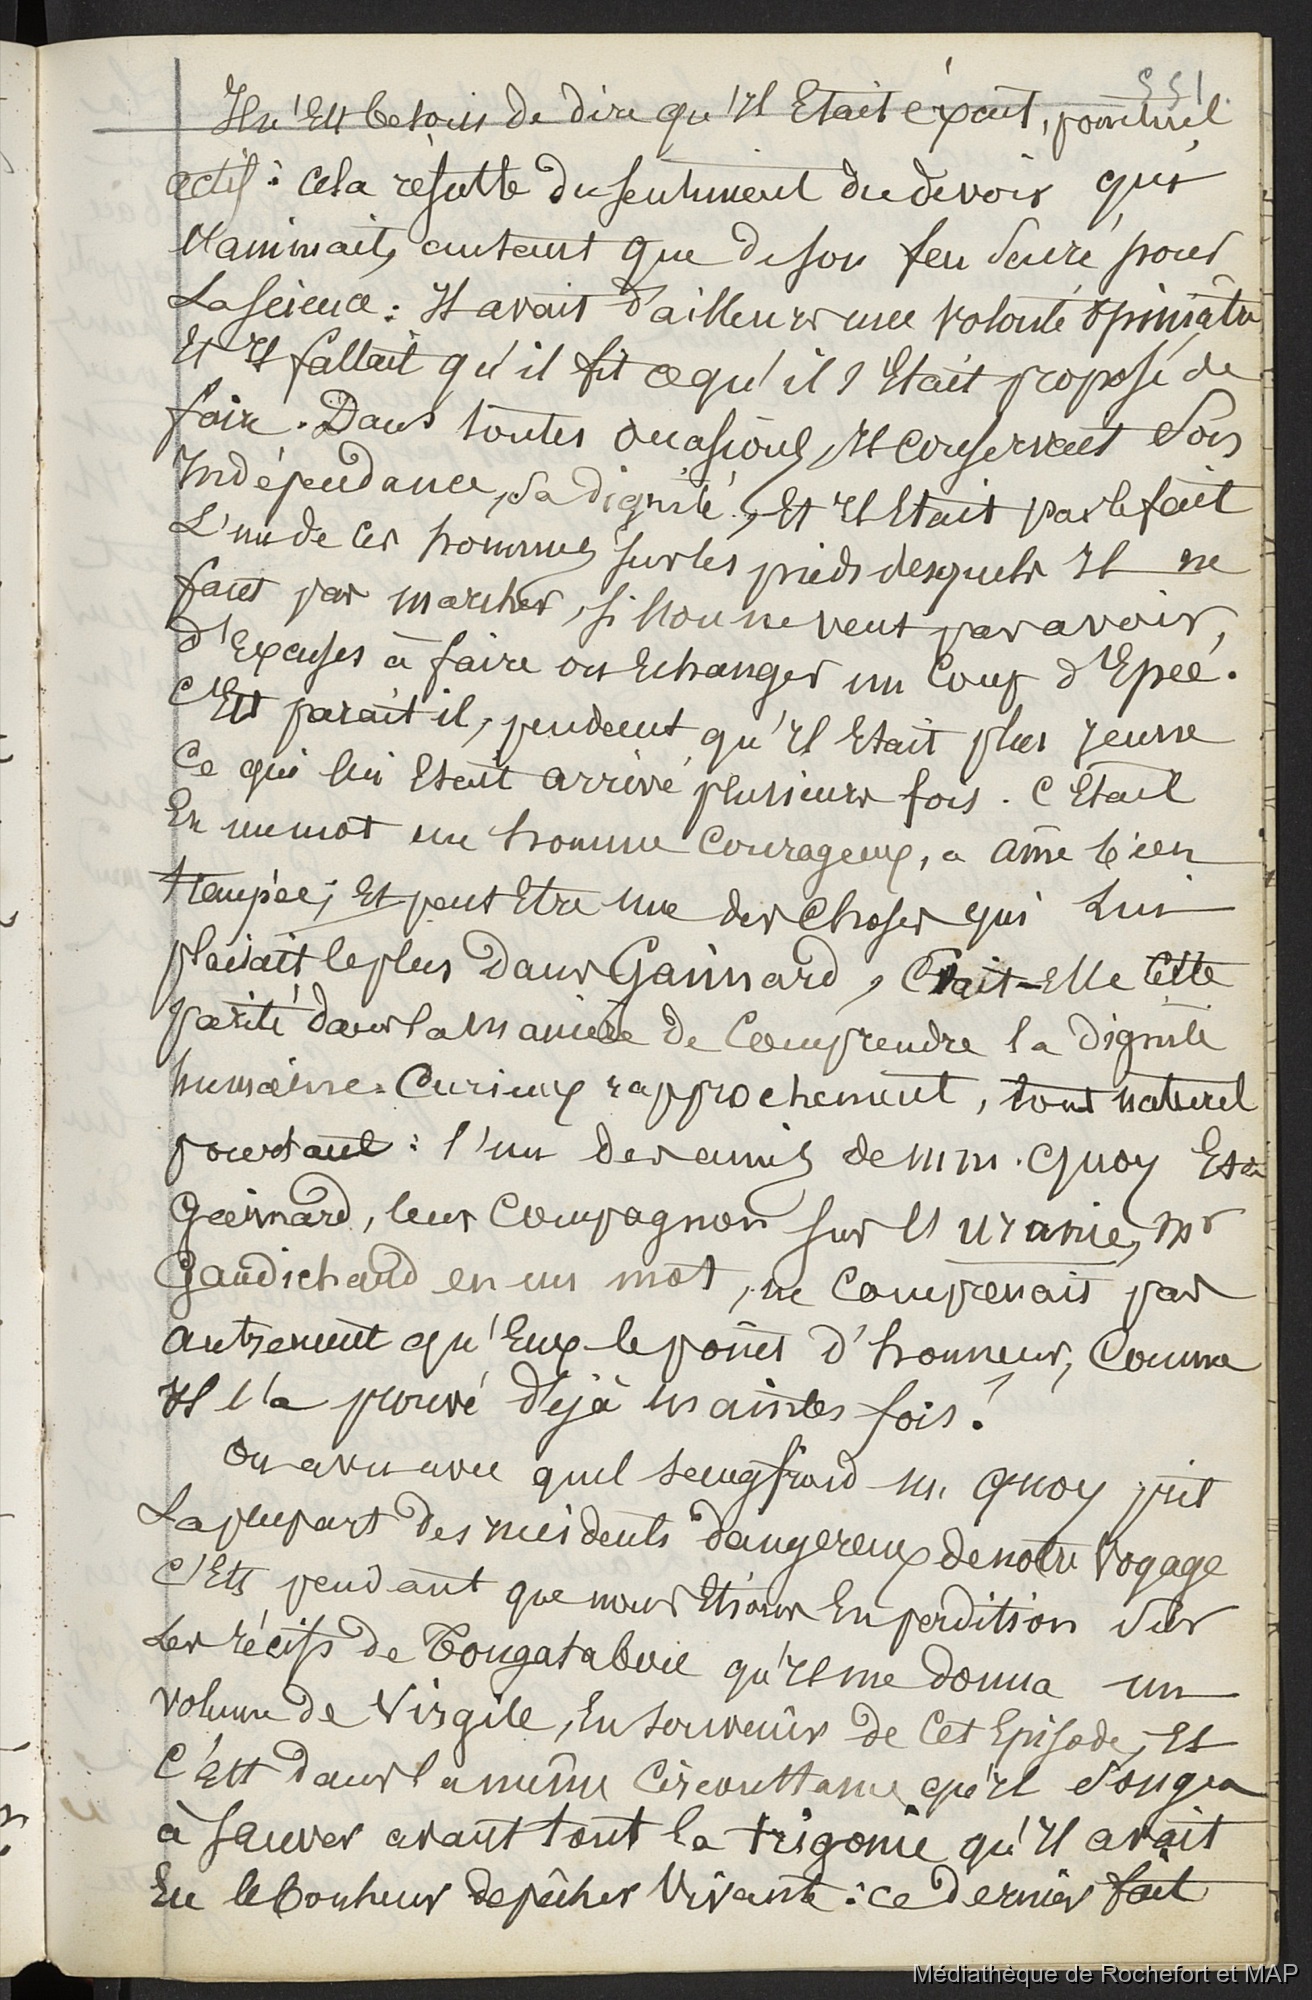 155.
Il n'Est besoin de dire qu'Il Etait exact, ponctuel
actif : cela résulte du sentiment du devoir qui
l'animait, autant que de son feu sacré pour
La Science : Il avait d'ailleurs une volonté opiniâtre
Et Il fallait qu'il fit ce qu'il s'Etait proposé de
faire. Dans toutes occasions, Il conservait Son
Indépendance, Sa dignité, Et Il Etait par le fait
L'un de ces hommes sur les pieds desquels Il ne
faut pas marcher, si l'on ne veut pas avoir,
d'Excuses à faire ou Echanger un Coup d'Epée.
C'Est parait il, pendant qu'Il Etait plus jeune
Ce qui lui Etait arrivé plusieurs fois. C'Etait
En un mot un homme Courageux, a âme bien
trempée; Et peut Etre une des choses qui Lui
plaisait le plus dans Gaimard, Etait-Elle Cette
parité dans la manière de Comprendre la dignité
humaine. Curieux rapprochement, tout naturel
pourtant : l'un des amis de mm. Quoy Et
Gaimard, leur Compagnon sur l'Uranie, Mr
Gaudichaud en un mot, ne Comprenait pas
autrement qu'Eux le point d'honneur, Comme
Il l'a prouvé déjà maintes fois !
On a vu avec quel sangfroid M. Quoy prit
La plupart des incidents dangereux de notre Voyage
C'Est pendant que nous Etions En perdition Sur
Les récifs de Tongatabou qu'Il me donna un
volume de Virgile, En souvenir de Cet Episode, Et
C'Est dans la même Circonstance qu'Il Songea
à Sauver avant tout la trigonie qu'Il avait
Eu le bonheur de pêcher Vivante : ce dernier fait
Médiathèque de Rochefort et MAP